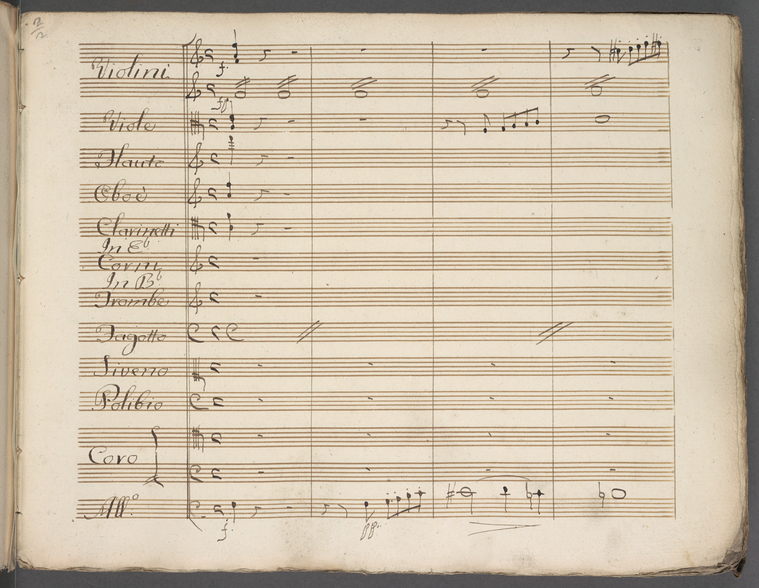 2/2
Violini
f.
ff
Viole
Flauto
Oboè
Clarinetti
In E♭
Corni
In B♭
Trombe
Fagotto
Siveno
Polibio
Coro
All.º
f.
pp.